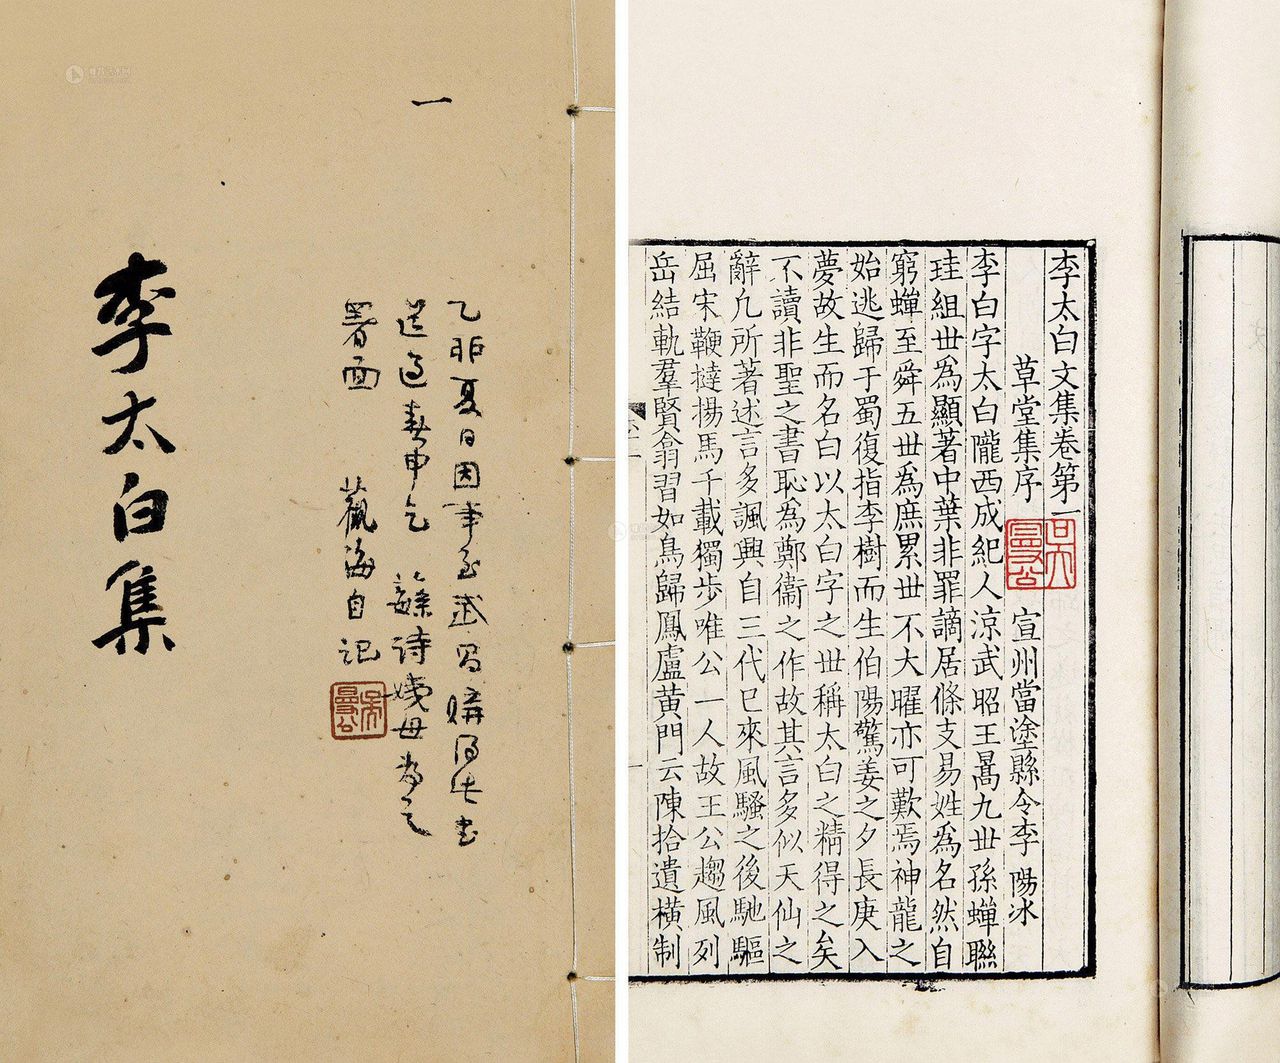 一
乙非夏日因事至武昌購得此書
署面 藐海自记
李太白集
李太白文集卷第一
草堂集序 宣州當塗縣令李陽冰
李白字太白隴西成紀人涼武昭王暠九世孫蟬聯
珪組世為顯著中葉非罪謫居條支易姓為名然自
窮蟬至舜五世為庶累世不大曜亦可歎焉神龍之
始逃歸于蜀復指李樹而生伯陽驚姜之夕長庚入
夢故生而名白以太白字之世稱太白之精得之矣
不讀非聖之書恥為鄭衞之作故其言多似天仙之
辭凡所著述言多諷興自三代已來風騷之後馳驅
屈宋鞭撻揚馬千載獨步唯公一人故王公趨風列
岳結軌羣賢翕習如鳥歸鳳盧黃門云陳拾遺橫制